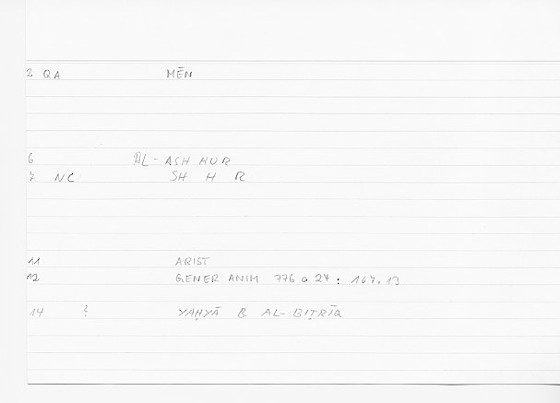 2 QA MĒN
6 AL-ASHHUR
7 NC SH H R
11 ARIST
12 GENER ANIM 776 a 27 : 167.13
14 ? YAḤYĀ B AL-BIṬRĪQ